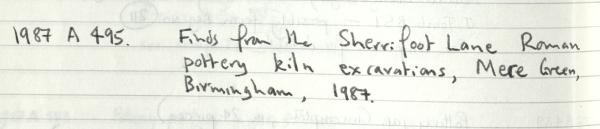 1987 A 495. Finds from the Sherrifoot Lane Roman
pottery kiln excavations, Mere Green,
Birmingham, 1987.